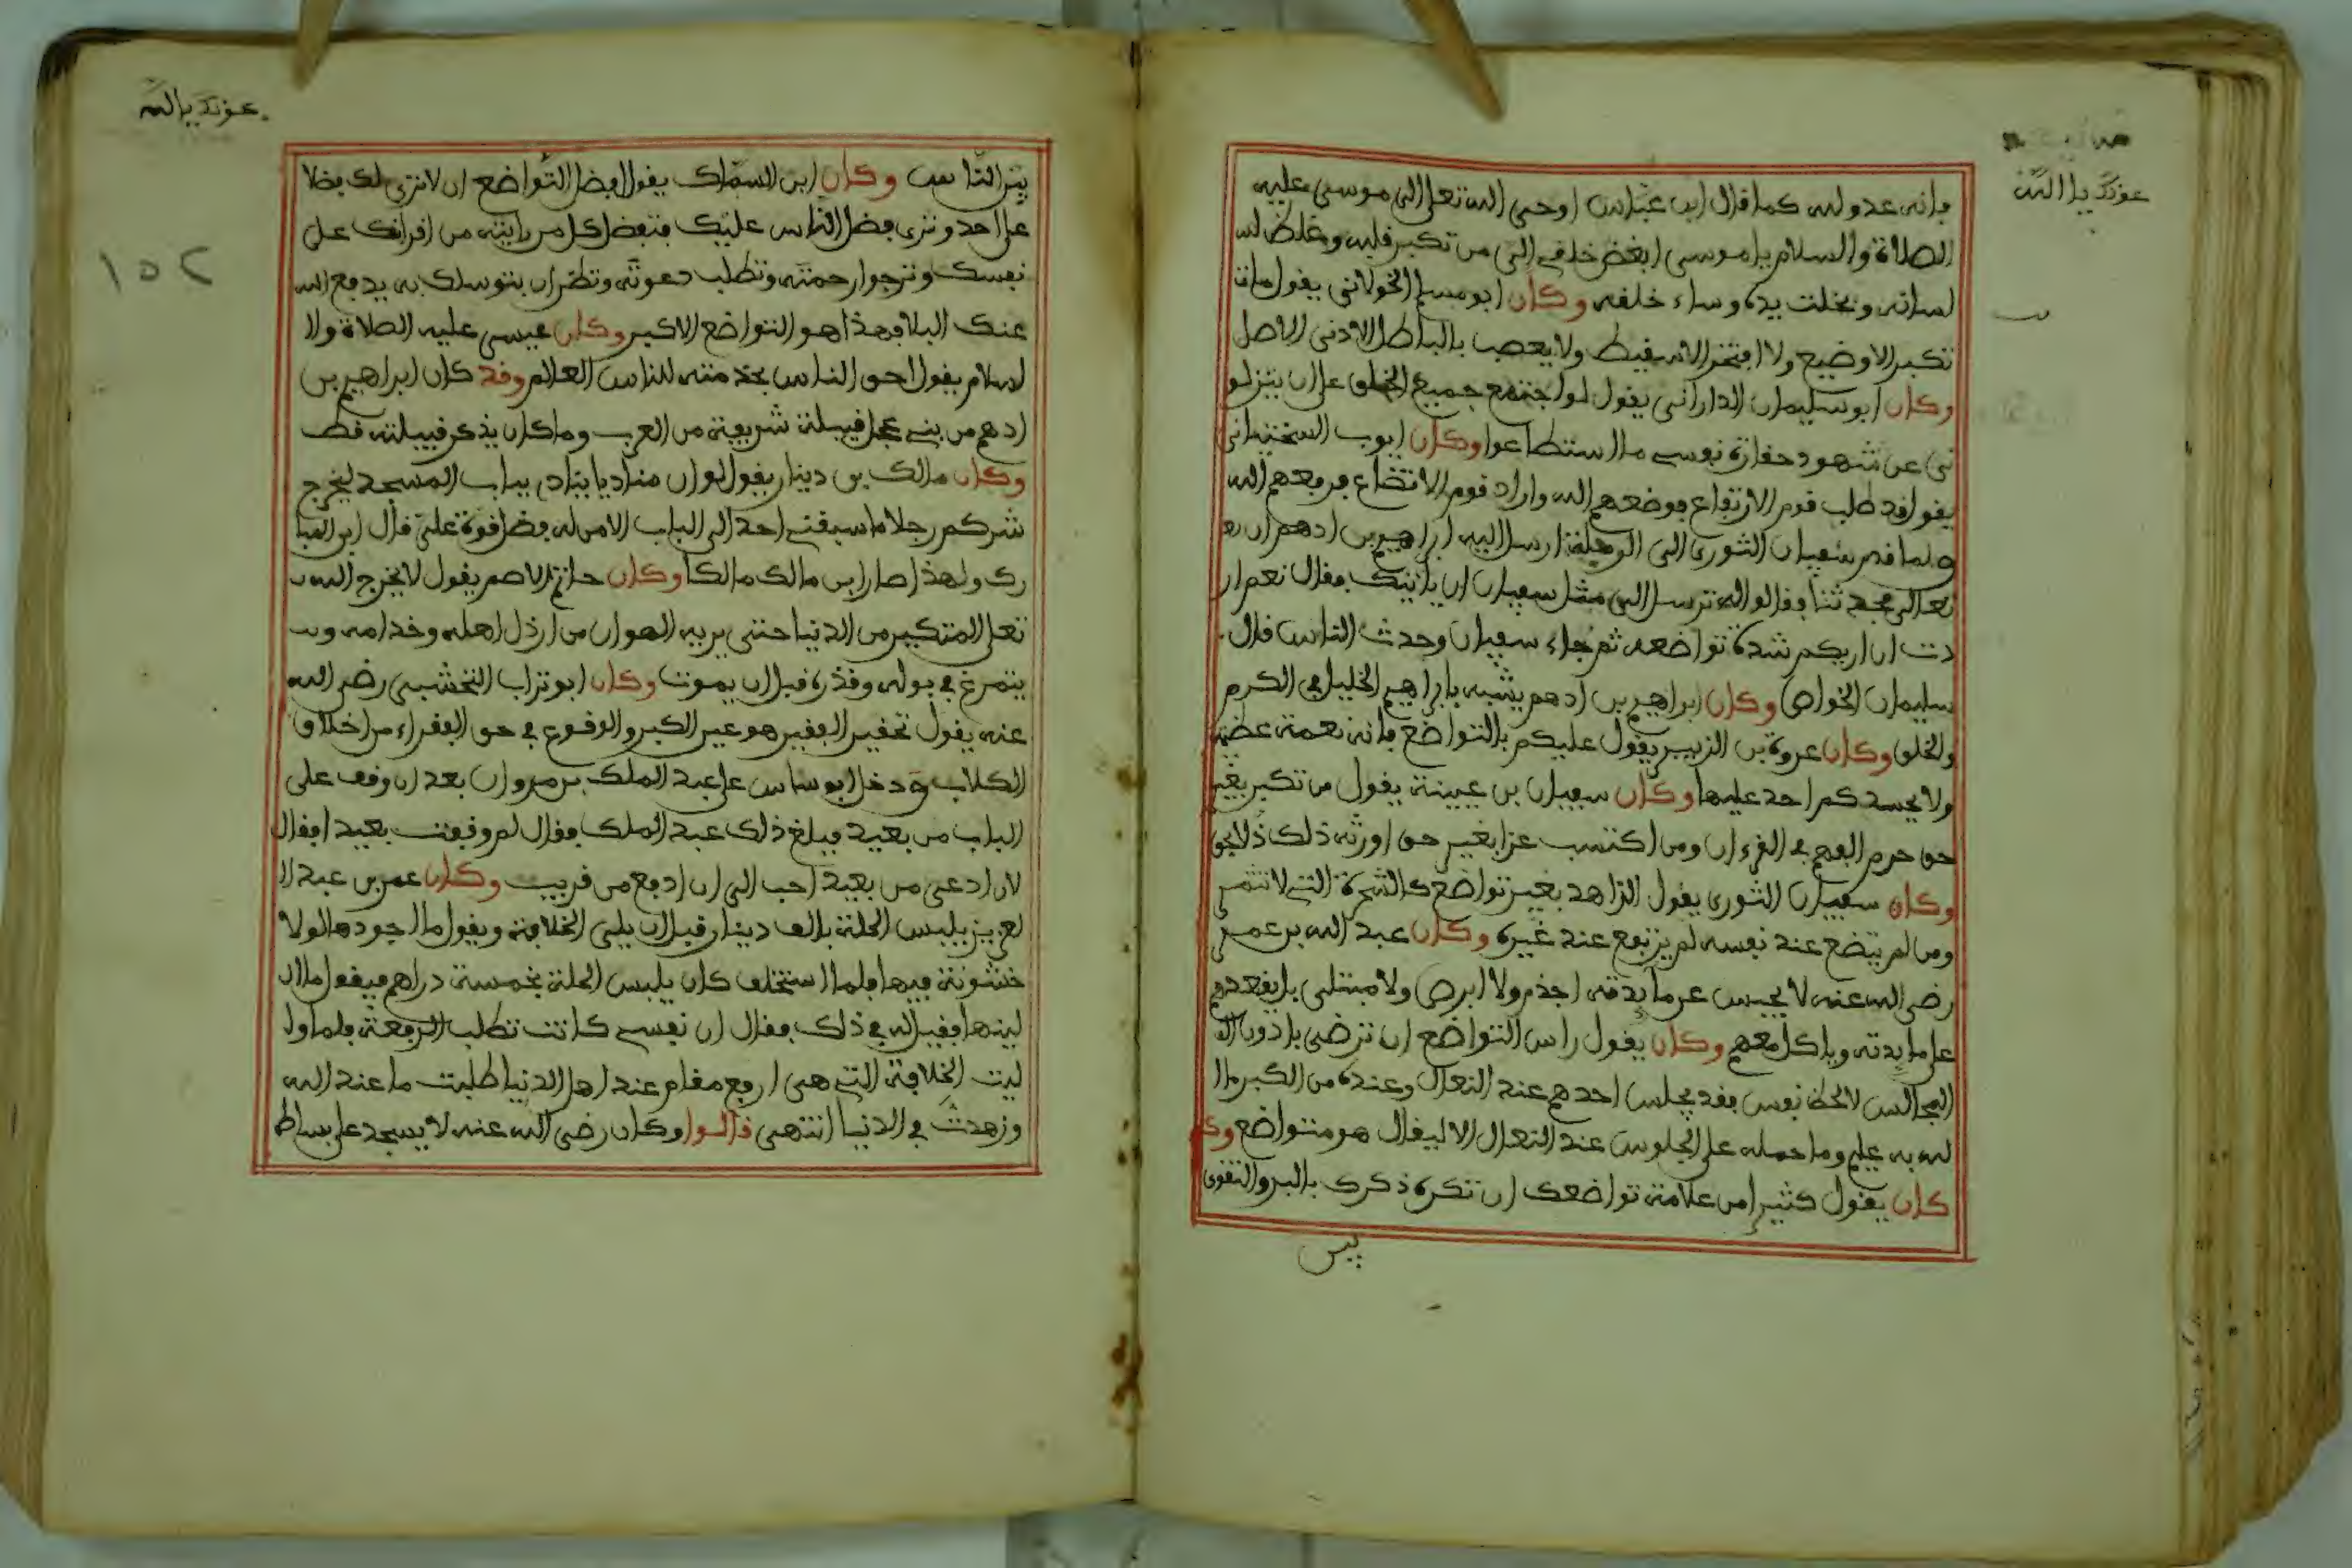 عونك يا الله
فإنه عدو لله كما قال ابن عباس اوحى الله تعلى الى موسى عليه
الصلاة والسلام يا موسى ابغض خلقي الي من تكبر قلبه وغلظ لسـ
لسانه وبخلت يده وساء خلقه وكان ابو مسلم الخولاني يقول ما تـ
تكبر الا وضيع ولا افتخر الا سقيط ولا يعصب بالباطل الا دنى الاصل
وكان ابو سليمان الداراني يقول لو اجتمع جميع الخلق على ان ينزلو
ني عن شهود حقارة نفسي ما استطاعوا وكان ايوب السختياني
يقول قد طلب قوم الارتفاع فوضعهم الله واراد قوم الاتضاع فرفعهم الله
ولما قدم سفيان الثوري الى الرملة ارسل اليه ابراهيم بن ادهم ان
تعالى فحدثنا فقالوا له ترسل الى مثل سفيان ان ياتيك فقال نعم ار
دت ان اريكم شدة تواضعه ثم جاء سفيان وحدث الناس قال
سليمان الخواص وكان ابراهيم بن ادهم يشبه بابراهيم الخليل في الكرم
والخلق وكان عروة بن الزبير يقول عليكم بالتواضع فانه نعمة عظيمة
ولا يحسدكم احد عليها وكان سفيان بن عيينة يقول من تكبر بغير
حق حرم الفهم في القرءان ومن اكتسب عزا بغير حق اورثه ذلك ذلا بحق
وكان سفيان الثوري يقول الزاهد بغير تواضع كالشجرة التي لا تثمر
ومن لم يتضع عند نفسه لم يرتفع عند غيره وكان عبد الله بن عمر
رضي الله عنه لا يحبس عن مايدته اجذم ولا ابرص ولا مبتلى بل يقعدهم
على مايدته وياكل معهم وكان يقول راس التواضع ان ترضى بادون
المجالس لا لحظ نفس فقد يجلس احدهم عند النعال وعنده من الكبر ما ا
لله به عليم وما حمله على الجلوس عند النعال الا ليقال هو متواضع وكـ
كان يقول كثيرا من علامة تواضعك ان تكره ذكرك بالبر والتقوى
بين
عونك يا الله
١٥٢
بين الناس وكان ابن السماك يقول افضل التواضع ان لا ترى لك فضلا
على احد وترى فضل الناس عليك فتفضل كل من رايته من اقرانك على
نفسك وترجوا رحمته وتطلب دعوته وتظن ان بتوسلك به يدفع الله
عنك البلا فهذا هو التواضع الاكبر وكان عيسى عليه الصلاة وال
لسلام يقول احق الناس بخدمته للناس العالم وقد كان ابراهيم بن
ادهم من بني عجل قبيلة شريفة من العرب وما كان يذكر قبيلته قط
وكان مالك بن دينار يقول لو ان مناديا ينادي بباب المسجد ليخرج
شركم رجلا ما سبقني احد الى الباب الا من له فضل قوة علي قال ابن المبا
رك ولهذا صار ابن مالك مالكا وكان حاتم الاصم يقول لا يخرج الله
تعلى المتكبر من الدنيا حتى يريه الهوان من ارذل اهله وخدامه و
يتمرغ في بوله وقذره قبل ان يموت وكان ابو تراب النخشبي رضي الله
عنه يقول تحقير الفقير هو عين الكبر والوقوع في حق الفقراء من اخلاق
الكلاب ودخل ابو ساس على عبد الملك بن مروان بعد ان وقف على
الباب من بعيد فبلغ ذلك عبد الملك فقال لم وقفت بعيدا فقال
لان ادعى من بعيد احب الي ان ادفع من قريب وكان عمر بن عبد ال
لعزيز يلبس الحلة بالف دينار قبل ان يلي الخلافة ويقول ما اجودها لولا
خشونة فيها فلما استخلف كان يلبس الحلة بخمسة دراهم فيقول ما ا
لينها فقيل له في ذلك فقال ان نفسي كانت تطلب الرفعة فلما ول
ليت الخلافة التي هي ارفع مقام عند اهل الدنيا طلبت ما عند الله
وزهدت في الدنيا انتهى قالوا وكان رضي الله عنه لا يسجد على بساط